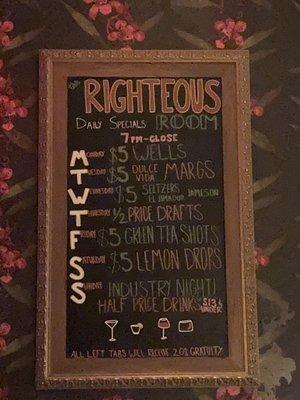 THE RIGHTEOUS
DAILY SPECIALS ROOM
7PM-CLOSE
MONDAY $5 WELLS
TUESDAY $5 DULCE VIDA MARGS
WEDNESDAY $5 SELTZERS EL JIMADOR JAMESON
THURSDAY 1/2 PRICE DRAFTS
FRIDAY $5 GREEN TEA SHOTS
SATURDAY $5 LEMON DROPS
SUNDAY INDUSTRY NIGHT!
HALF PRICE DRINKS $13 & UNDER
ALL LEFT TABS WILL RECEIVE 20% GRATUITY